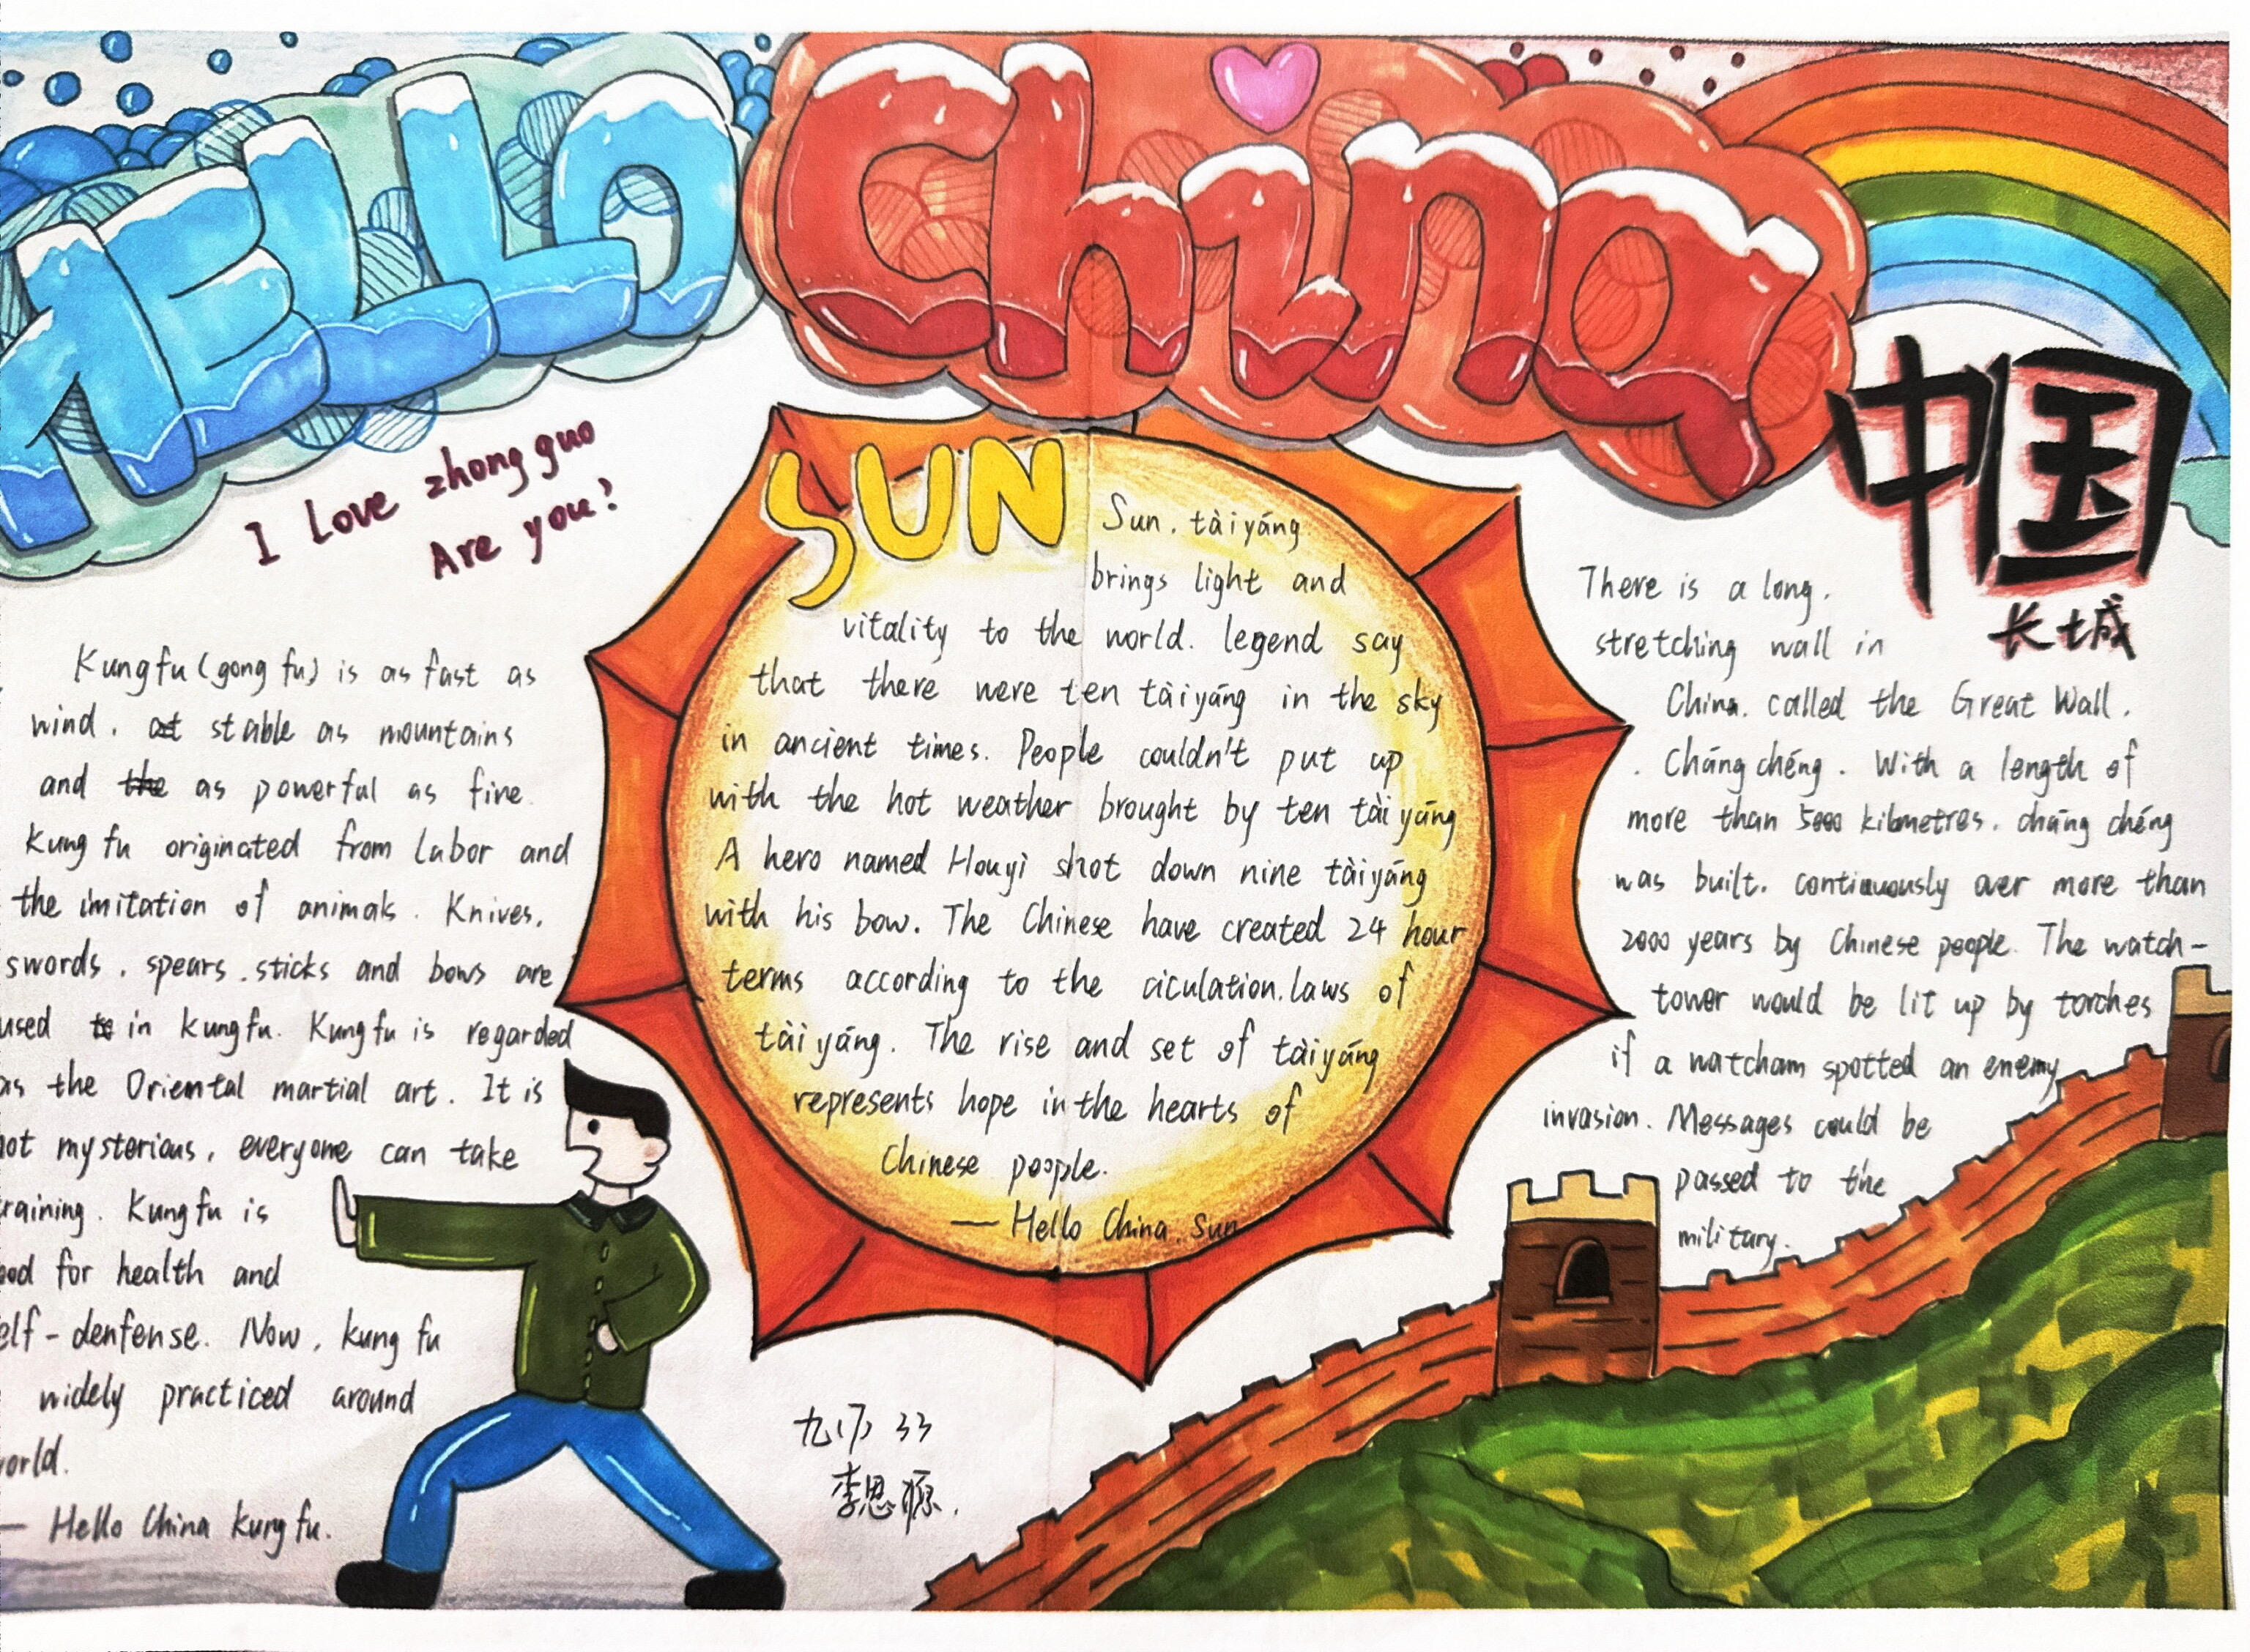 HELLO China
中国
长城
I Love zhong guo
Are you?
Kung fu (gong fu) is as fast as
wind. stable as mountains
and as powerful as fire.
Kung fu originated from Labor and
the imitation of animals. Knives,
swords, spears, sticks and bows are
used in kungfu. Kung fu is regarded
as the Oriental martial art. It is
not mysterious, everyone can take
training. Kung fu is
ood for health and
elf-denfense. Now, kung fu
widely practiced around
orld.
— Hello China kung fu.
SUN
Sun, tàiyáng
brings light and
vitality to the world. legend say
that there were ten tàiyáng in the sky
in ancient times. People couldn't put up
with the hot weather brought by ten tàiyáng
A hero named Houyì shot down nine tàiyáng
with his bow. The Chinese have created 24 hour
terms according to the ciculation laws of
tàiyáng. The rise and set of tàiyáng
represents hope in the hearts of
Chinese people.
— Hello China, Sun
There is a long,
stretching wall in
China, called the Great Wall,
Cháng chéng. With a length of
more than 5000 kilometres, cháng chéng
was built, continuously over more than
2000 years by Chinese people. The watch-
tower would be lit up by torches
if a watcham spotted an enemy
invasion. Messages could be
passed to the
military.
九(7) 33
李思源.